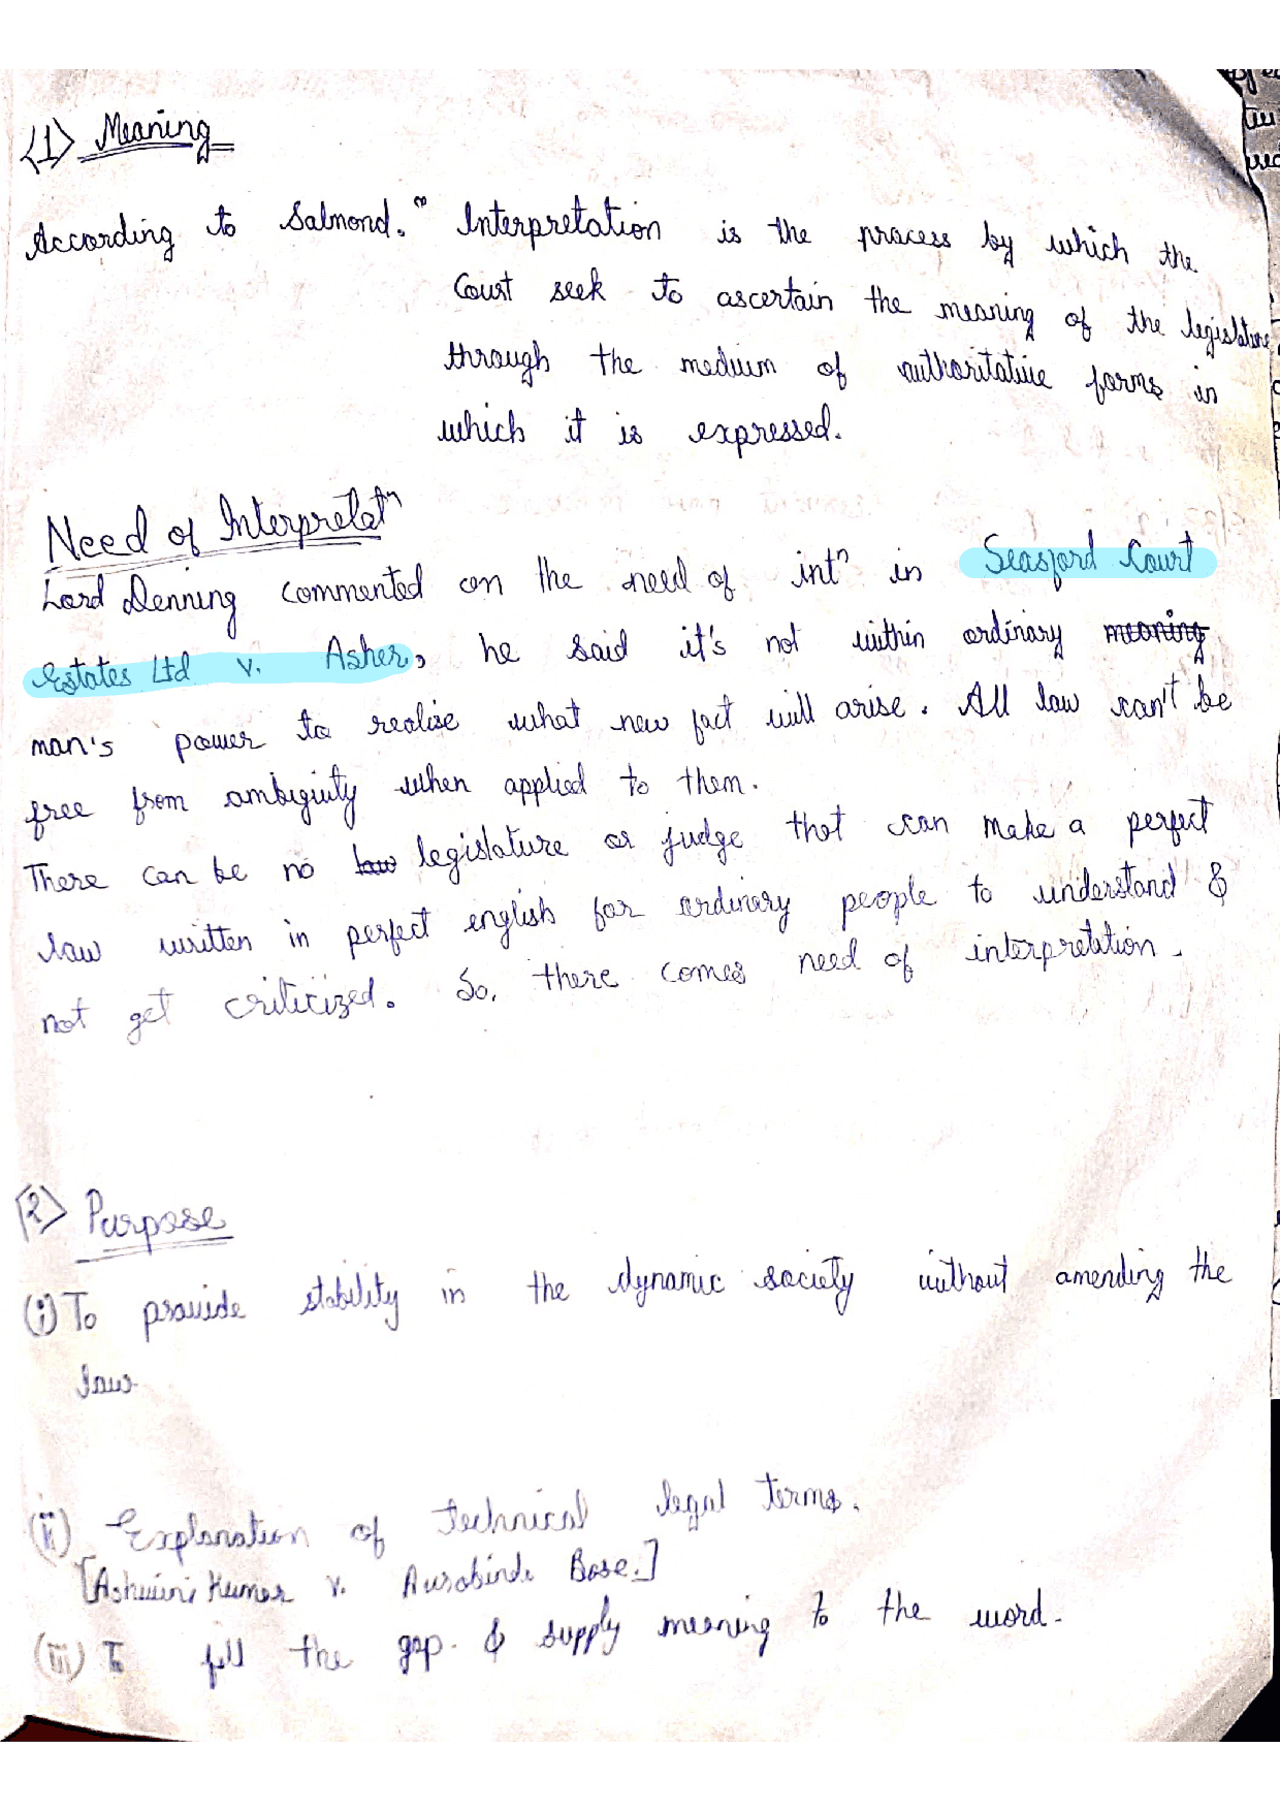 (1) Meaning
According to Salmond. " Interpretation is the process by which the
Court seek to ascertain the meaning of the legislature
through the medium of authoritative forms in
which it is expressed.
Need of Interpretatⁿ
Lord Denning commented on the need of intⁿ in Seasford Court
Estates Ltd v. Asher, he said it's not within ordinary meaning
man's power to realise what new fact will arise. All law can't be
free from ambiguity when applied to them.
There can be no law legislature or judge that can make a perfect
law written in perfect english for ordinary people to understand &
not get criticized. So, there comes need of interpretation.
(2) Purpose
(i) To provide stability in the dynamic society without amending the
law.
(ii) Explanation of technical legal terms.
[Ashwini Kumar v. Aurobindo Bose.]
(iii) To fill the gap. & supply meaning to the word.